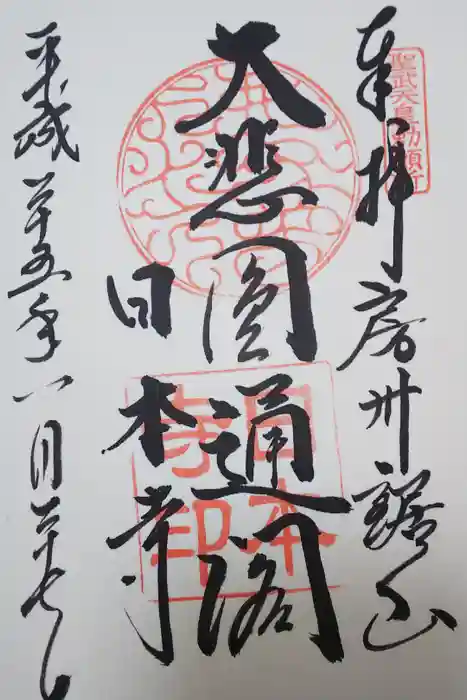 奉拝 房州 鋸山
聖武天皇勅願所
大悲圓通閣
日本寺
日本寺印
平成廿五年八月廿七日